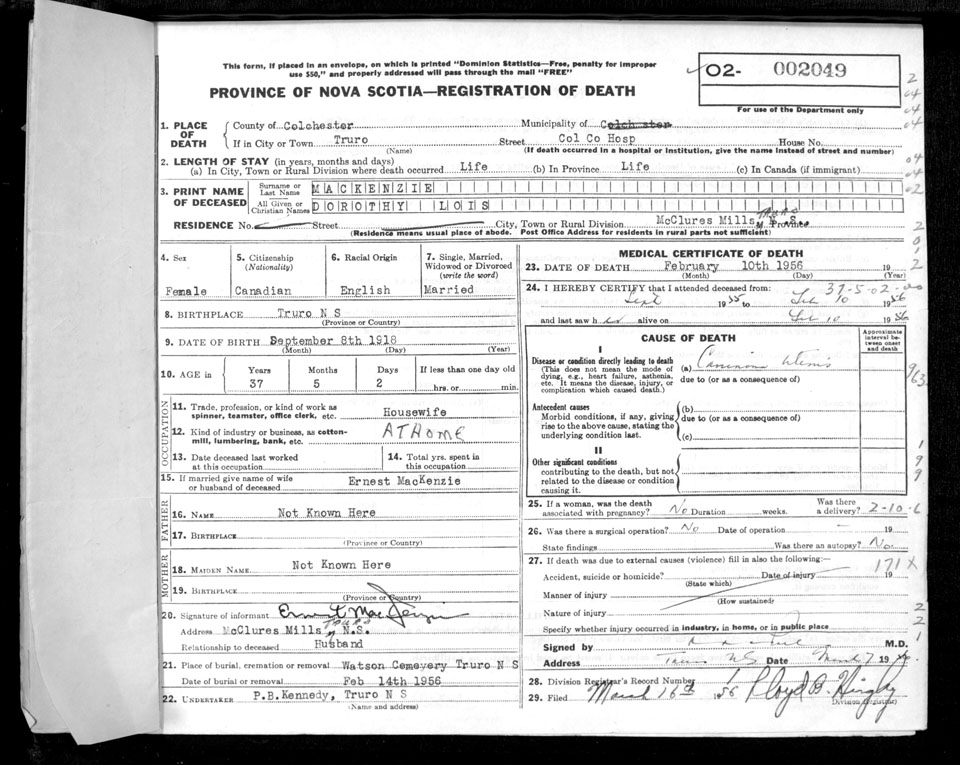 This form, if placed in an envelope, on which is printed "Dominion Statistics—Free, penalty for improper
use $50," and properly addressed will pass through the mail "FREE"
O2- 002049
For use of the Department only
PROVINCE OF NOVA SCOTIA—REGISTRATION OF DEATH
1. PLACE OF DEATH
County of Colchester Municipality of Colchester
If in City or Town Truro Street Col Co Hosp House No.
(Name) (If death occurred in a hospital or institution, give the name instead of street and number)
2. LENGTH OF STAY (in years, months and days)
(a) In City, Town or Rural Division where death occurred Life (b) In Province Life (c) In Canada (if immigrant)
3. PRINT NAME OF DECEASED
Surname or Last Name MACKENZIE
All Given or Christian Names DOROTHY LOIS
RESIDENCE No. Street City, Town or Rural Division McClures Mills Truro N.S. Province
(Residence means usual place of abode. Post Office Address for residents in rural parts not sufficient)
4. Sex
Female
5. Citizenship (Nationality)
Canadian
6. Racial Origin
English
7. Single, Married, Widowed or Divorced (write the word)
Married
8. BIRTHPLACE Truro N S
(Province or Country)
9. DATE OF BIRTH September 8th 1918
(Month) (Day) (Year)
10. AGE in Years Months Days If less than one day old
37 5 2 hrs. or min.
OCCUPATION
11. Trade, profession, or kind of work as
spinner, teamster, office clerk, etc. Housewife
12. Kind of industry or business, as cotton-
mill, lumbering, bank, etc. AT HOME
13. Date deceased last worked
at this occupation
14. Total yrs. spent in
this occupation
15. If married give name of wife
or husband of deceased Ernest MacKenzie
FATHER
16. NAME Not Known Here
17. BIRTHPLACE
(Province or Country)
MOTHER
18. MAIDEN NAME Not Known Here
19. BIRTHPLACE
(Province or Country)
20. Signature of informant Ernest MacKenzie
Address McClures Mills Truro N.S.
Relationship to deceased Husband
21. Place of burial, cremation or removal Watson Cemeyery Truro N S
Date of burial or removal Feb 14th 1956
22. UNDERTAKER P.B.Kennedy, Truro N S
(Name and address)
MEDICAL CERTIFICATE OF DEATH
23. DATE OF DEATH February 10th 1956 19
(Month) (Day) (Year)
24. I HEREBY CERTIFY that I attended deceased from: 37-5-02-00
Sept 1955 to Feb 10 1956
and last saw her alive on Feb 10 1956
CAUSE OF DEATH
Approximate interval between onset and death
I
Disease or condition directly leading to death
(This does not mean the mode of
dying, e.g., heart failure, asthenia,
etc. It means the disease, injury, or
complication which caused death.)
(a) Carcinoma Uterus
due to (or as a consequence of)
Antecedent causes
Morbid conditions, if any, giving
rise to the above cause, stating the
underlying condition last.
(b)
due to (or as a consequence of)
(c)
II
Other significant conditions
contributing to the death, but not
related to the disease or condition
causing it.
25. If a woman, was the death
associated with pregnancy? No Duration weeks. Was there
a delivery? 2-10-6
26. Was there a surgical operation? No Date of operation 19
State findings Was there an autopsy? No
27. If death was due to external causes (violence) fill in also the following:—
171X
Accident, suicide or homicide? Date of injury 19
(State which)
Manner of injury
(How sustained)
Nature of injury
Specify whether injury occurred in industry, in home, or in public place
Signed by M.D.
Address Truro NS Date March 7 19
28. Division Registrar's Record Number
29. Filed March 16th 1956 Lloyd B. Hingley
(Division Registrar)